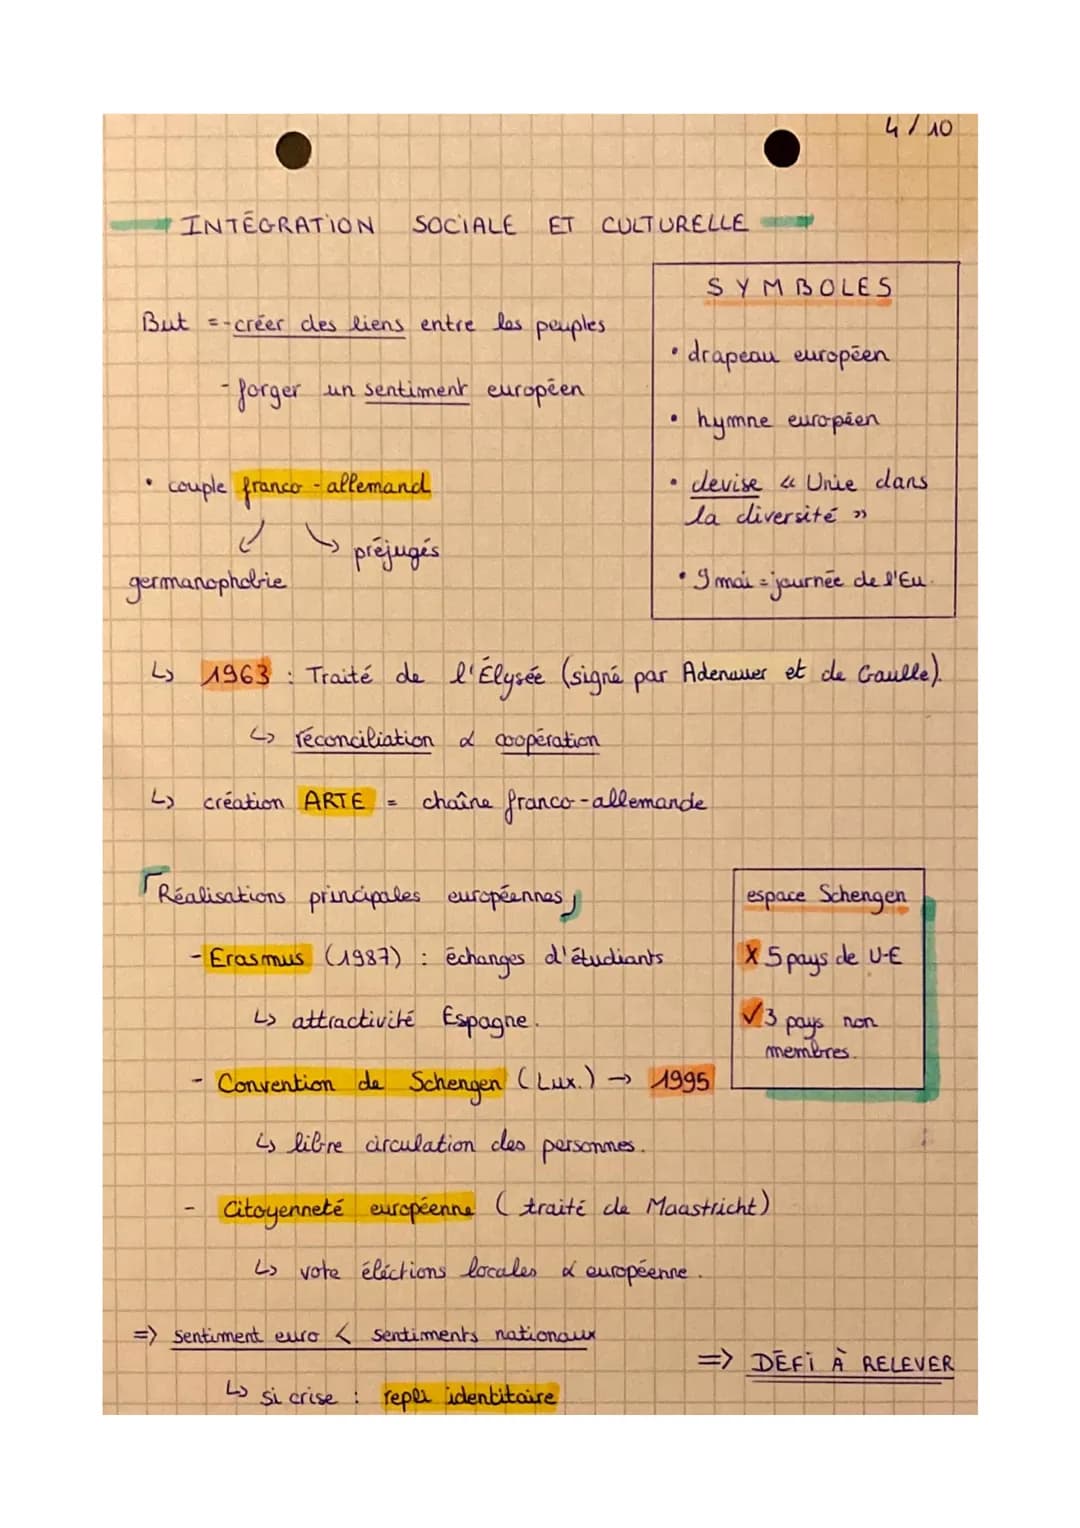 4/10
INTÉGRATION SOCIALE ET CULTURELLE
But = - créer des liens entre les peuples
- forger un sentiment européen
• couple franco-allemand
préjugés
germanophobie
SYMBOLES
• drapeau européen
• hymne européen
• devise « Unie dans
la diversité »
• 9 mai = journée de l'Eu.
↳ 1963 : Traité de l'Élysée (signé par Adenauer et de Gaulle).
↳ réconciliation & coopération
↳ création ARTE = chaîne franco-allemande
Réalisations principales européennes
- Erasmus (1987) : échanges d'étudiants
↳ attractivité Espagne.
- Convention de Schengen (Lux.) → 1995
↳ libre circulation des personnes.
espace Schengen
X 5 pays de U-E
✓ 3 pays non
membres.
- Citoyenneté européenne (traité de Maastricht)
↳ vote éléctions locales & européenne.
=> sentiment euro < sentiments nationaux
↳ si crise : repli identitaire
=> DÉFI À RELEVER